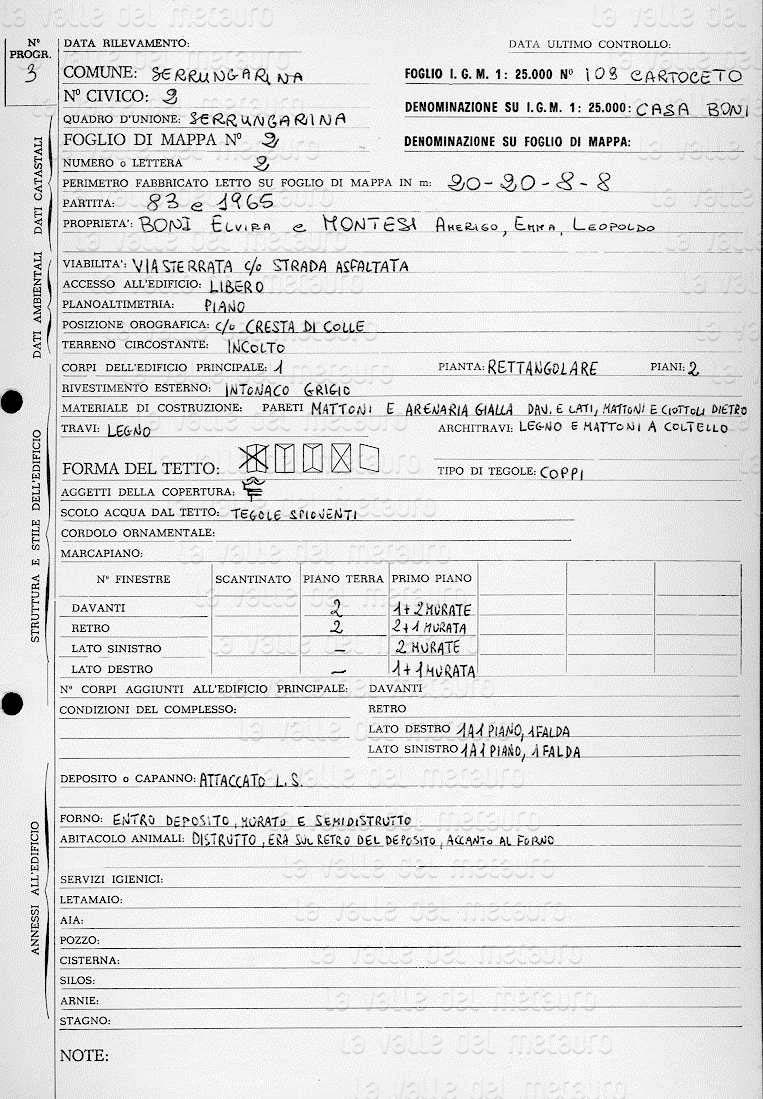 Nº PROGR. 3
DATA RILEVAMENTO: DATA ULTIMO CONTROLLO:
COMUNE: SERRUNGARINA FOGLIO I. G. M. 1: 25.000 Nº 109 CARTOCETO
Nº CIVICO: 2 DENOMINAZIONE SU I.G.M. 1: 25.000: CASA BONI
QUADRO D'UNIONE: SERRUNGARINA
FOGLIO DI MAPPA Nº 2 DENOMINAZIONE SU FOGLIO DI MAPPA:
NUMERO o LETTERA 2
PERIMETRO FABBRICATO LETTO SU FOGLIO DI MAPPA IN m: 20-20-8-8
PARTITA: 83 e 1965
PROPRIETA': BONI ELVIRA e MONTESI AMERIGO, EMMA, LEOPOLDO
DATI CATASTALI
VIABILITA': VIA STERRATA c/o STRADA ASFALTATA
ACCESSO ALL'EDIFICIO: LIBERO
PLANOALTIMETRIA: PIANO
POSIZIONE OROGRAFICA: c/o CRESTA DI COLLE
TERRENO CIRCOSTANTE: INCOLTO
DATI AMBIENTALI
CORPI DELL'EDIFICIO PRINCIPALE: 1 PIANTA: RETTANGOLARE PIANI: 2
RIVESTIMENTO ESTERNO: INTONACO GRIGIO
MATERIALE DI COSTRUZIONE: PARETI MATTONI E ARENARIA GIALLA DAV. E LATI, MATTONI E CIOTTOLI DIETRO
TRAVI: LEGNO ARCHITRAVI: LEGNO E MATTONI A COLTELLO
FORMA DEL TETTO: TIPO DI TEGOLE: COPPI
AGGETTI DELLA COPERTURA:
SCOLO ACQUA DAL TETTO: TEGOLE SPIOVENTI
CORDOLO ORNAMENTALE:
MARCAPIANO:
Nº FINESTRE SCANTINATO PIANO TERRA PRIMO PIANO
DAVANTI 2 1+2 MURATE
RETRO 2 2+1 MURATA
LATO SINISTRO – 2 MURATE
LATO DESTRO – 1+1 MURATA
STRUTTURA E STILE DELL'EDIFICIO
Nº CORPI AGGIUNTI ALL'EDIFICIO PRINCIPALE: DAVANTI
CONDIZIONI DEL COMPLESSO: RETRO
LATO DESTRO 1 A 1 PIANO, 1 FALDA
LATO SINISTRO 1 A 1 PIANO, 1 FALDA
DEPOSITO o CAPANNO: ATTACCATO L.S.
FORNO: ENTRO DEPOSITO, MURATO E SEMIDISTRUTTO
ABITACOLO ANIMALI: DISTRUTTO, ERA SUL RETRO DEL DEPOSITO, ACCANTO AL FORNO
SERVIZI IGIENICI:
LETAMAIO:
AIA:
POZZO:
CISTERNA:
SILOS:
ARNIE:
STAGNO:
ANNESSI ALL'EDIFICIO
NOTE:
la valle del metauro